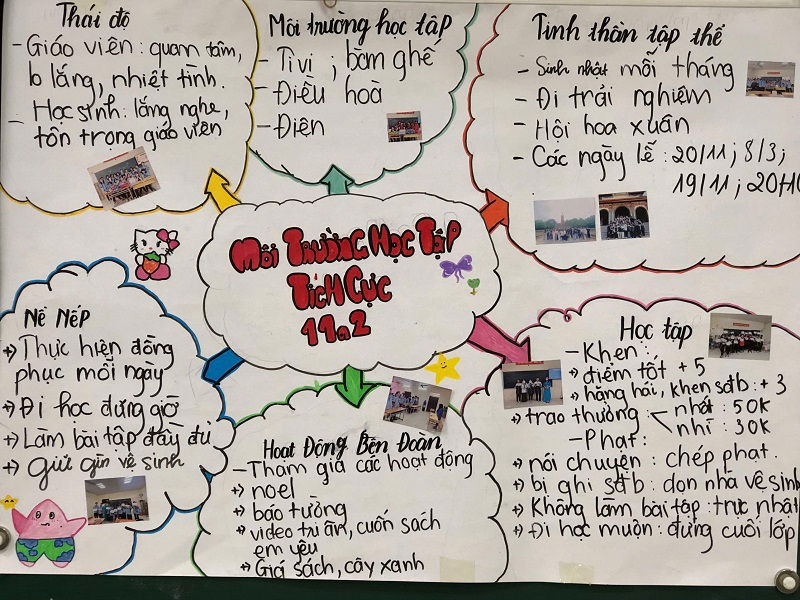 Thái độ
- Giáo viên : quan tâm,
lo lắng, nhiệt tình.
- Học sinh : lắng nghe,
tôn trọng giáo viên
Môi trường học tập
- Tivi ; bàn ghế
- Điều hoà
- Điện
Tinh thần tập thể
- Sinh nhật mỗi tháng
- Đi trải nghiệm
- Hội hoa xuân
- Các ngày lễ : 20/11 ; 8/3 ;
19/11 ; 20/10
MÔI TRƯỜNG HỌC TẬP
TÍCH CỰC
11a2
Nề Nếp
Thực hiện đồng
phục mỗi ngày
Đi học đúng giờ
Làm bài tập đầy đủ
giữ gìn vệ sinh
Hoạt Động Bên Đoàn
- Tham gia các hoạt động
noel
báo tường
video tri ân, cuốn sách
em yêu
Giá sách, cây xanh
Học tập
- Khen :
điểm tốt + 5
hăng hái, khen sđb : + 3
trao thưởng : nhất : 50K
nhì : 30K
- Phạt :
nói chuyện : chép phạt.
bị ghi sđb : dọn nhà vệ sinh
Không làm bài tập : trực nhật
Đi học muộn : đứng cuối lớp